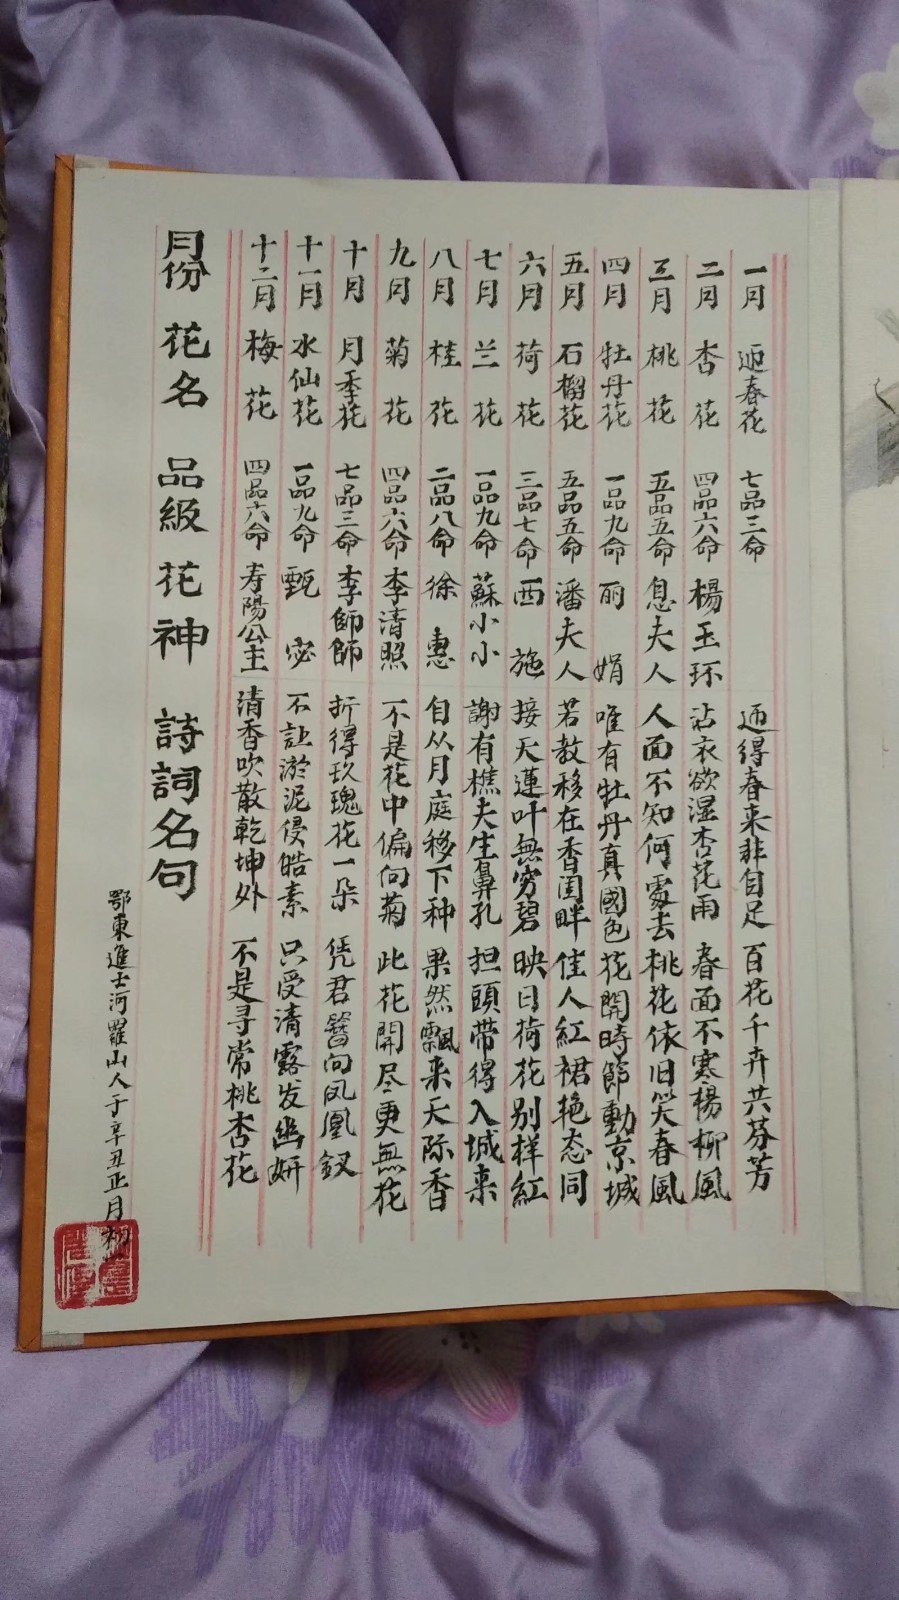 一月 迎春花 七品三命 迊得春来非自足 百花千卉共芬芳
二月 杏花 四品六命 楊玉环 沾衣欲湿杏花雨 春面不寒楊柳風
三月 桃花 五品五命 息夫人 人面不知何處去 桃花依旧笑春風
四月 牡丹花 一品九命 丽娟 唯有牡丹真國色 花開時節動京城
五月 石榴花 五品五命 潘夫人 若教移在香闺畔 佳人紅裙艳态同
六月 荷花 三品七命 西施 接天蓮叶無穷碧 映日荷花别样紅
七月 兰花 一品九命 蘇小小 謝有樵夫生鼻孔 担頭带得入城来
八月 桂花 二品八命 徐惠 自从月庭移下种 果然飄来天际香
九月 菊花 四品六命 李清照 不是花中偏向菊 此花開尽更無花
十月 月季花 七品三命 李師師 折得玖瑰花一朵 凭君簪向凤凰釵
十一月 水仙花 一品九命 甄宓 不讠淤泥侵皓素 只受清露发幽妍
十二月 梅花 四品六命 寿陽公主 清香吹散乾坤外 不是寻常桃杏花
月份 花名 品級 花神 詩詞名句
鄂東進士河羅山人于辛丑正月初